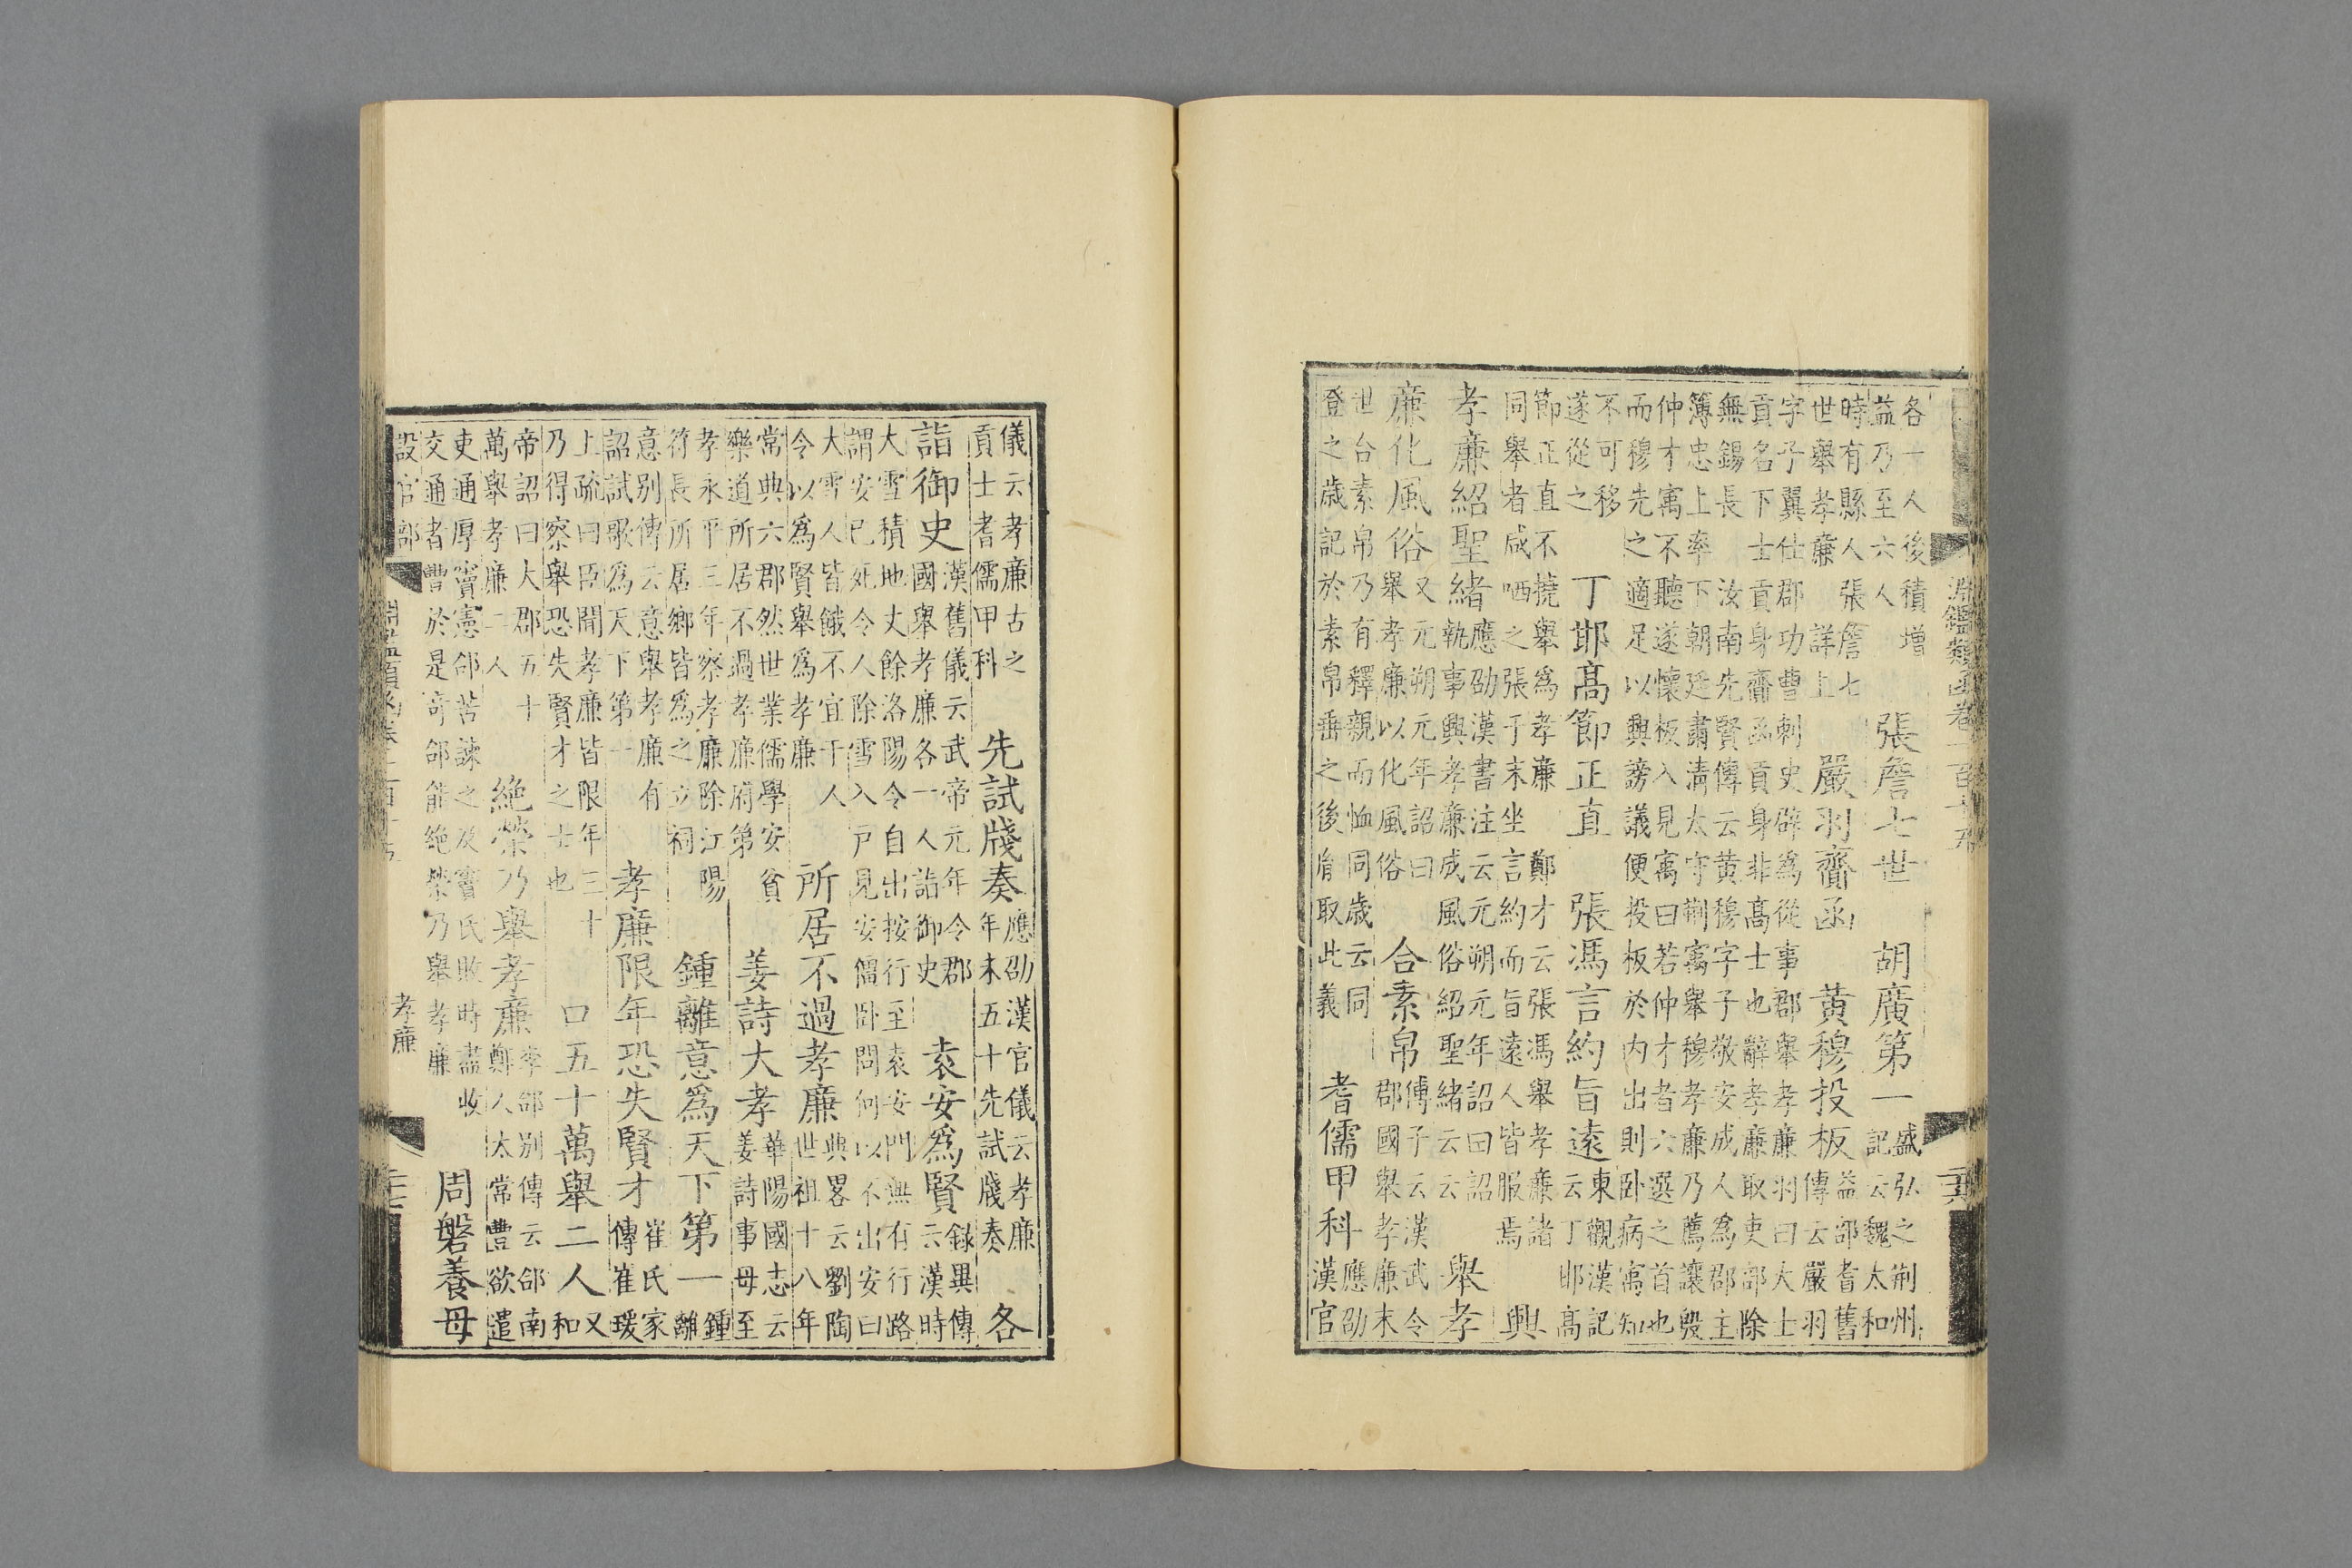 淵鑑類函卷一百
二十六
各一人後積增
益乃至六人
張詹七世 胡廣第一
盛弘之荆州
記云魏太和
時有縣人張詹七
世舉孝廉 詳上
嚴羽齎函 黃穆投板
益部耆舊
傳云嚴羽
字子翼仕郡功曹刺史辟為從事郡舉孝廉羽曰大士
貢名下士貢身齎函貢身非髙士也辭孝廉取吏部除
無錫長 汝南先賢傳云黃穆字子敬安成人為郡主
簿忠上率下朝廷肅清太守荆寓舉穆孝廉乃薦讓殷
仲才寓不聽遂懷板入見寓曰若仲才者六選之首也
而穆先之適足以興謗議便投板於内出則卧病寓知
不可移
遂從之
丁邯髙節正直 張馮言約旨遠
東觀漢記
云丁邯髙
節正直不撓舉為孝廉 鄭才云張馮舉孝廉諸
同舉者咸哂之張于末坐言約而旨遠人皆服焉
興
孝廉紹聖緒
應劭漢書注云元朔元年詔曰詔
執事興孝廉成風俗紹聖緒云云
舉孝
廉化風俗
又元朔元年詔曰
舉孝廉以化風俗
合素帛
傅子云漢武令
郡國舉孝廉末
世台素帛乃有釋親而恤同歲云同
登之歲記於素帛垂之後胤取此義
耆儒甲科
應劭
漢官
儀云孝廉古之
貢士耆儒甲科
先試牋奏
應劭漢官儀云孝廉
年未五十先試牋奏
各
詣御史
漢舊儀云武帝元年令郡
國舉孝廉各一人詣御史
袁安為賢
録異傳
云漢時
大雪積地丈餘洛陽令自出按行至袁安門無有行路
謂安已死令人除雪入戶見安僵卧問何以不出安曰
大雪人皆餓不宜干人
令以為賢舉為孝廉
所居不過孝廉
典畧云劉陶
世祖十八年
常典六郡然世業儒學安貧
樂道所居不過孝廉府第
姜詩大孝
華陽國志云
姜詩事母至
孝永平三年察孝廉除江陽
符長所居鄉皆為之立祠
鍾離意為天下第一
鍾
離
意别傳云意舉孝廉有
詔試歌為天下第一
孝廉限年恐失賢才
崔氏家
傳崔瑗
上疏曰臣聞孝廉皆限年三十
乃得察舉恐失賢才之士也
口五十萬舉二人
又
和
帝詔曰大郡五十
萬舉孝廉二人
絶榮乃舉孝廉
李郃别傳云郃南
鄭人太常豐欲遣
吏通厚竇憲郃苦諫之及竇氏敗時盡收
交通者豐於是奇郃能絶榮乃舉孝廉
周磐養母
設官部
孝廉
二十七